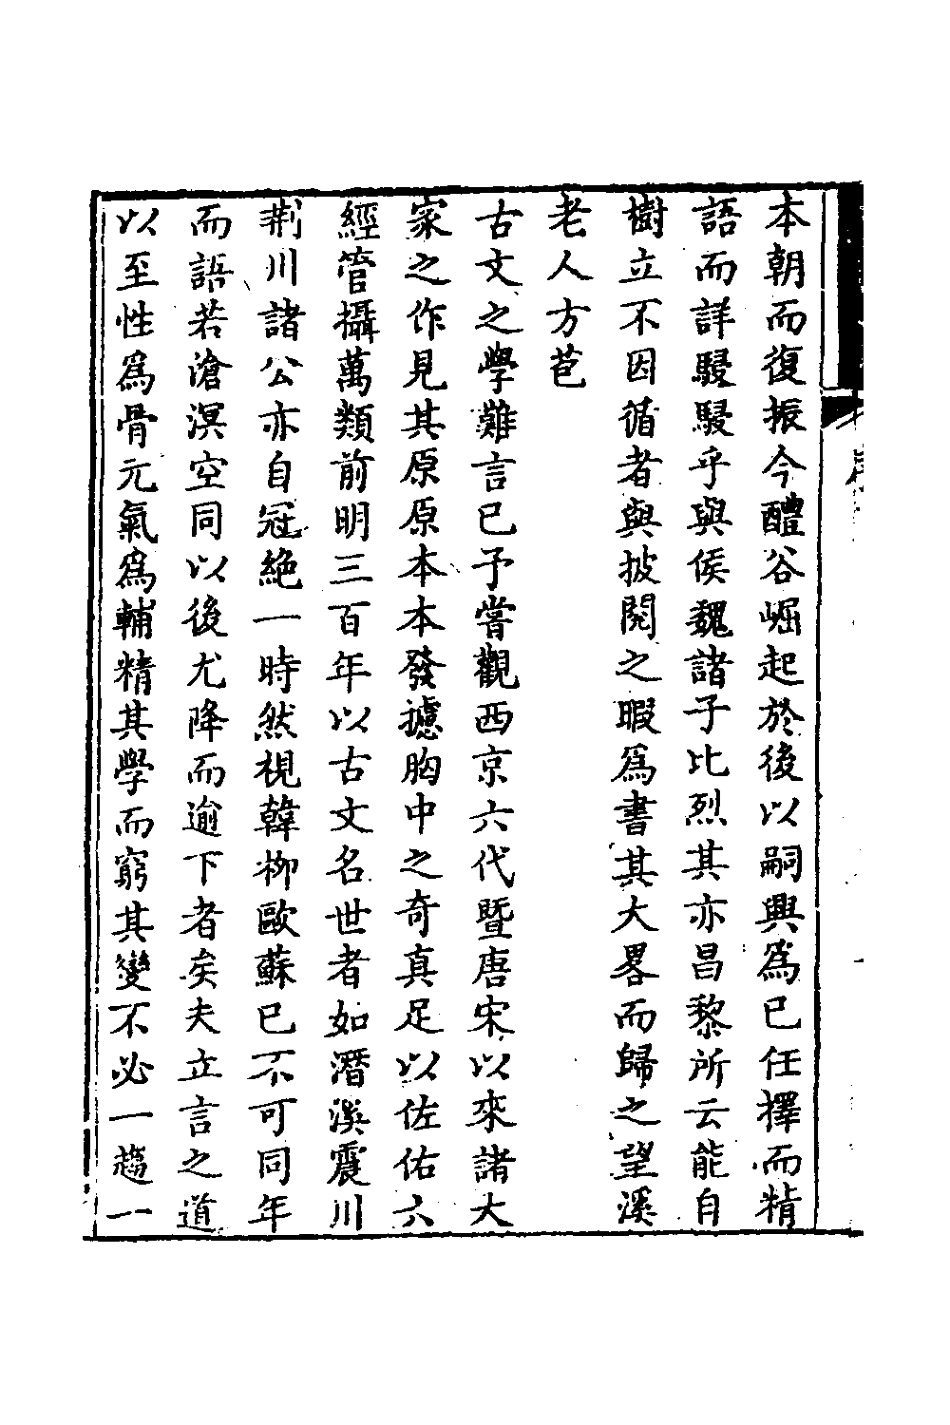 本朝而復振今醴谷崛起於後以嗣興爲已任擇而精
語而詳駸駸乎與侯魏諸子比烈其亦昌黎所云能自
樹立不因循者與披閱之暇爲書其大畧而歸之望溪
老人方苞
古文之學難言已予嘗觀西京六代暨唐宋以來諸大
家之作見其原原本本發攄胸中之奇真足以佐佑六
經管攝萬類前明三百年以古文名世者如潛溪震川
荆川諸公亦自冠絶一時然視韓栁歐蘇已不可同年
而語若滄溟空同以後尤降而逾下者矣夫立言之道
以至性爲骨元氣爲輔精其學而窮其變不必一趨一